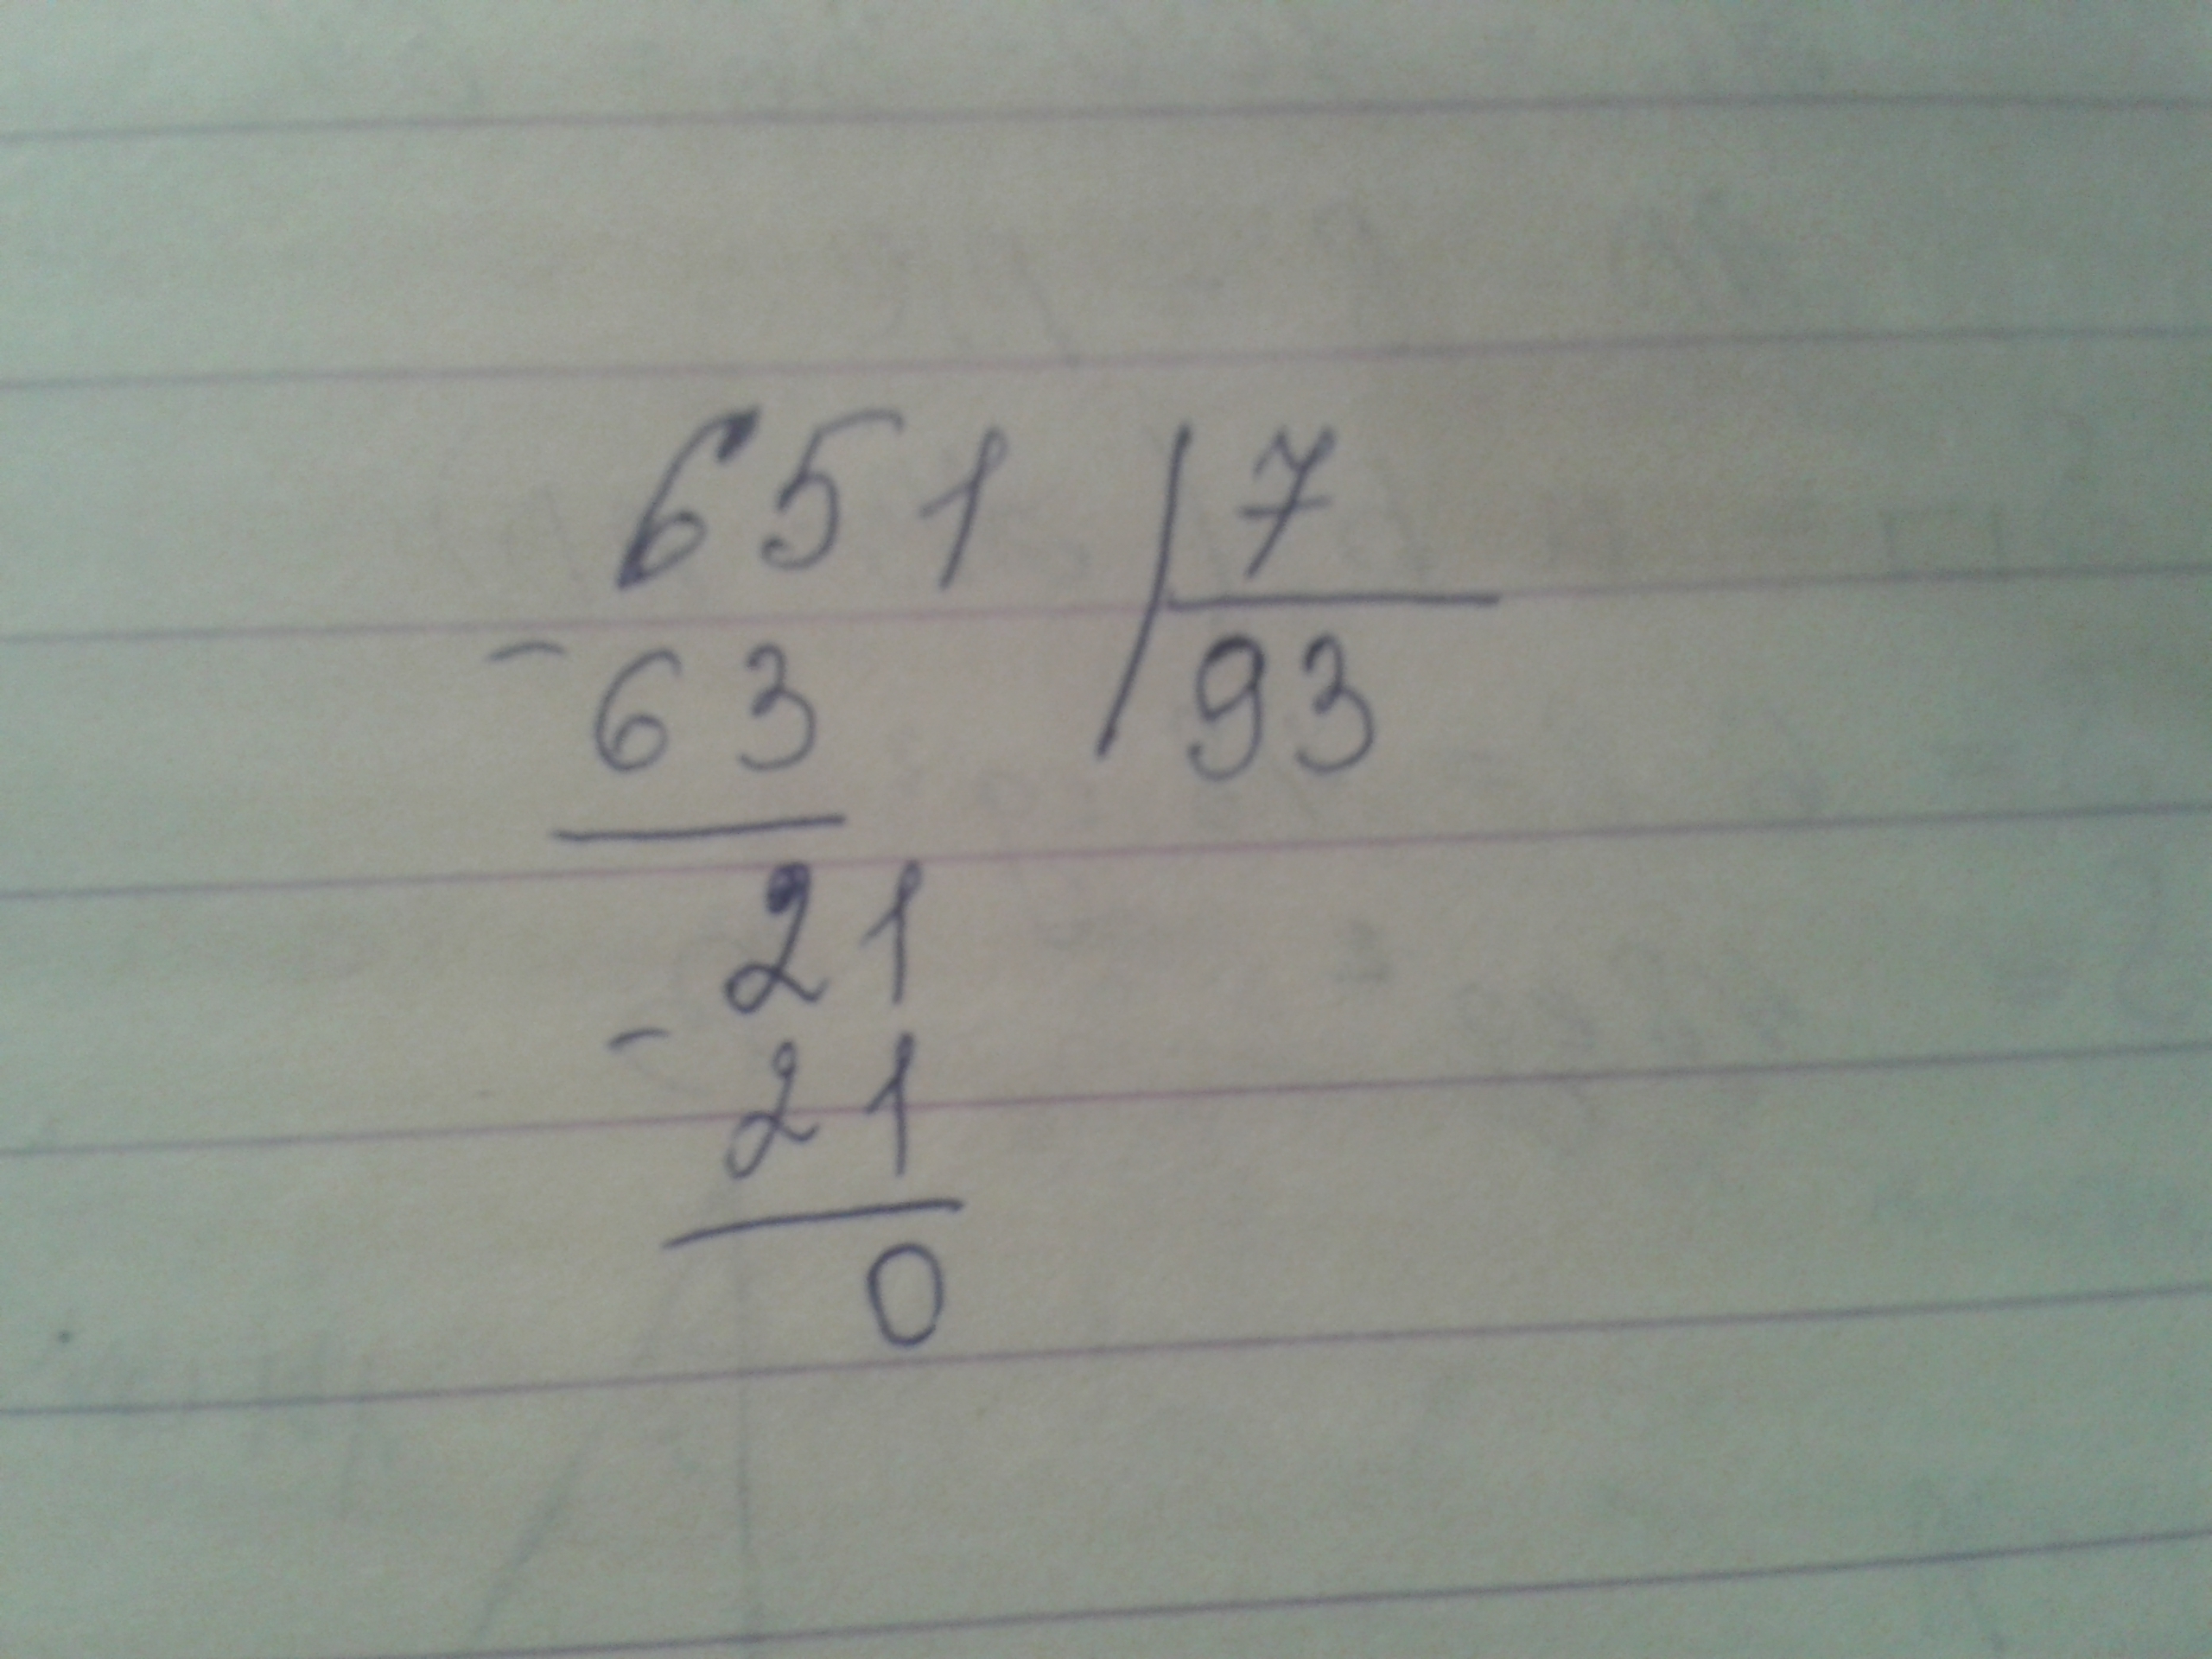 651 | 7
- 63 93
21
- 21
0